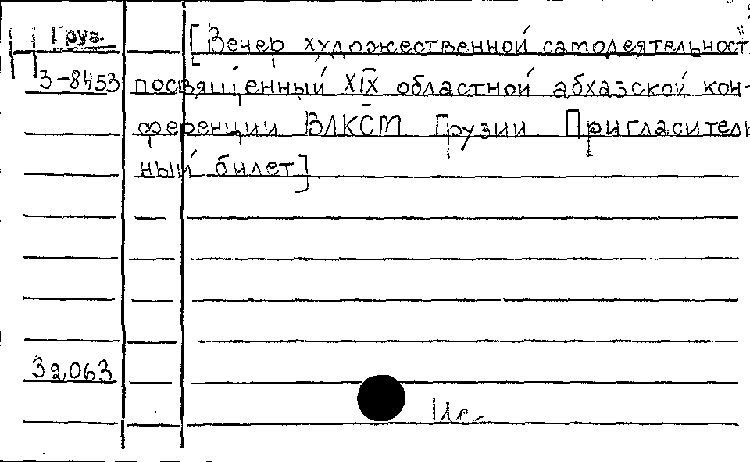 Груз. [Вечер художественной самодеятельност
3-8453 посвященный XIX областной абхазской кон-
ференции ВЛКСМ Грузии Пригласитель
ный билет]
32.063